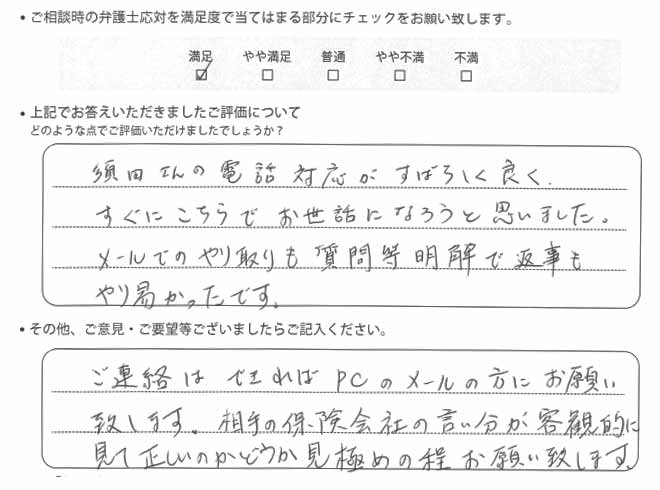 ・ご相談時の弁護士応対を満足度で当てはまる部分にチェックをお願い致します。
満足 やや満足 普通 やや不満 不満
・上記でお答えいただきましたご評価について
どのような点でご評価いただけましたでしょうか？
須田さんの電話対応がすばらしく良く、
すぐにこちらでお世話になろうと思いました。
メールでのやり取りも質問等明解で返事も
やり易かったです。
・その他、ご意見・ご要望等ございましたらご記入ください。
ご連絡はできればPCのメールの方にお願い
致します。相手の保険会社の言い分が客観的に
見て正しいのかどうか見極めの程お願い致します。